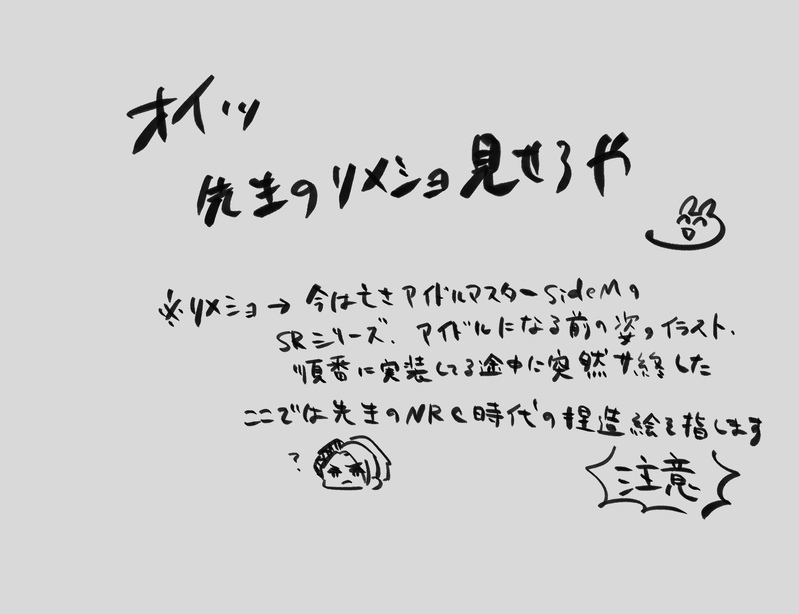 オイッ
先生のリメショ見せろや
※リメショ→今は亡きアイドルマスターSideMの
SRシリーズ、アイドルになる前の姿のイラスト、
順番に実装してる途中に突然サ終した
ここでは先生のNRC時代の捏造絵を指します
?
注意